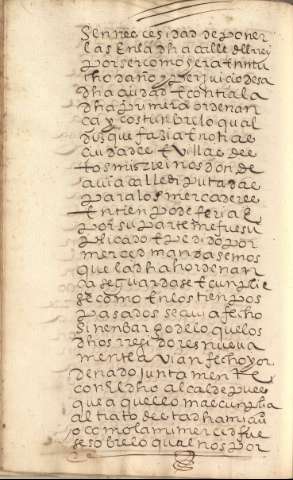 sen neçesidad de poner
las en la dha calle del rrei
por ser como sera en mu
cho daño y perjuiçio desa
dha çiudad e contra la
dha primera ordenan
ça y costunbre lo qual
dis que fazia en otras
çiudades e villas de
estos mis rreinos donde
avia calle diputada e
para los mercaderes
en tienpo de feria e
por su parte me fue su
plicado e pedido por
merçed mandasemos
que la dha hordenan
ça se guardase e cunplie
se como en los tienpos
pasados se avia fecho
sin enbargo de lo que los
dhos rregidores nueva
mente avian fecho y or
denado juntamente
con el dho alcalde pues
que aquello mas cunplia
al trato desta dha mi çiu
o como la mi merçed fue
se sobre lo qual nos por